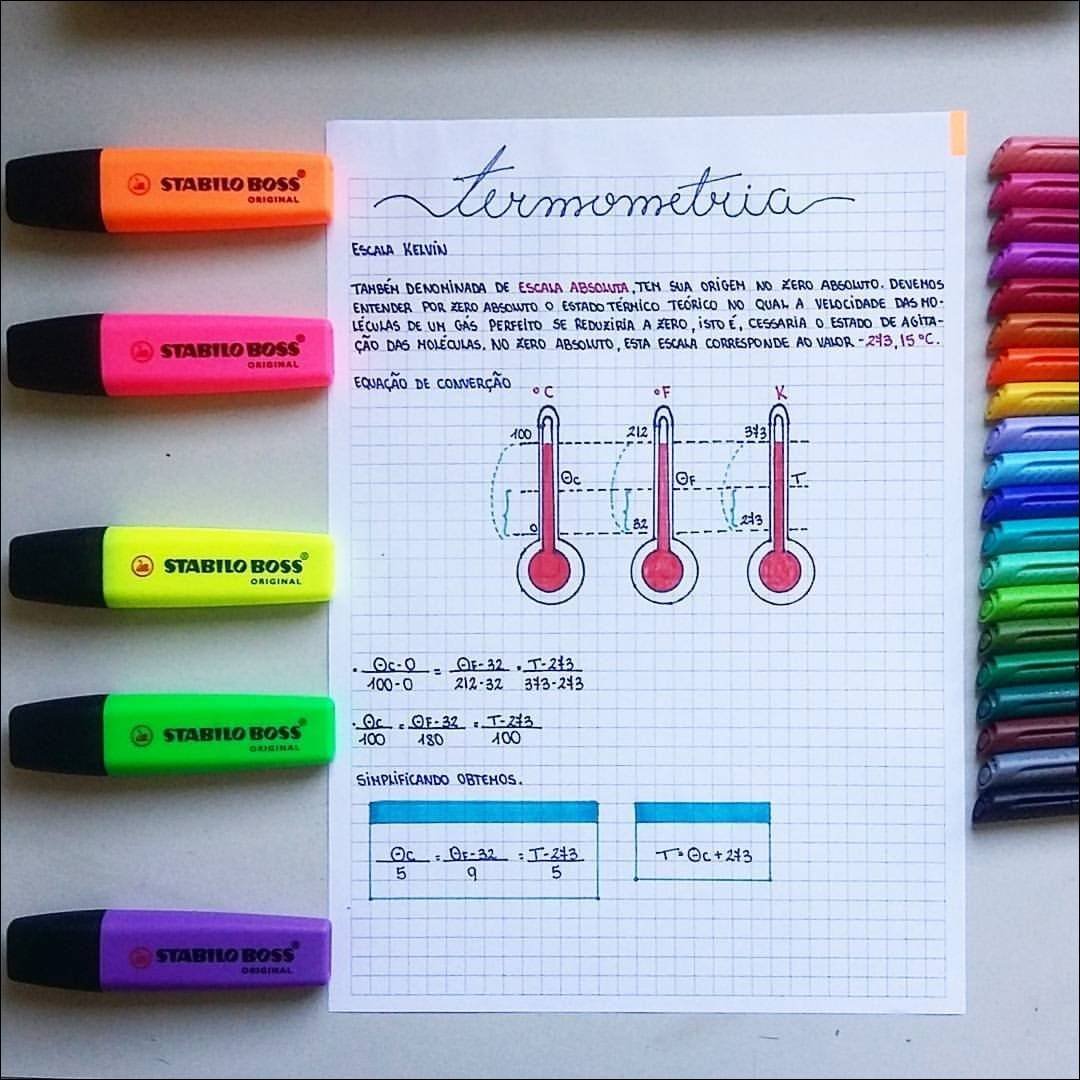 termometria
ESCALA KELVIN
TAMBÉM DENOMINADA DE ESCALA ABSOLUTA, TEM SUA ORIGEM NO ZERO ABSOLUTO. DEVEMOS
ENTENDER POR ZERO ABSOLUTO O ESTADO TÉRMICO TEÓRICO NO QUAL A VELOCIDADE DAS MO-
LÉCULAS DE UM GÁS PERFEITO SE REDUZIRIA A ZERO, ISTO É, CESSARIA O ESTADO DE AGITA-
ÇÃO DAS MOLÉCULAS. NO ZERO ABSOLUTO, ESTA ESCALA CORRESPONDE AO VALOR -273,15 °C.
EQUAÇÃO DE CONVERÇÃO
°C °F K
100 212 373
Θc ΘF T
0 32 273
· Θc-0 = ΘF-32 · T-273
100-0 212-32 373-273
· Θc = ΘF-32 = T-273
100 180 100
SIMPLIFICANDO OBTEMOS.
Θc = ΘF-32 = T-273
5 9 5
T=Θc+273
STABILO BOSS®
ORIGINAL
STABILO BOSS®
ORIGINAL
STABILO BOSS®
ORIGINAL
STABILO BOSS®
ORIGINAL
STABILO BOSS®
ORIGINAL